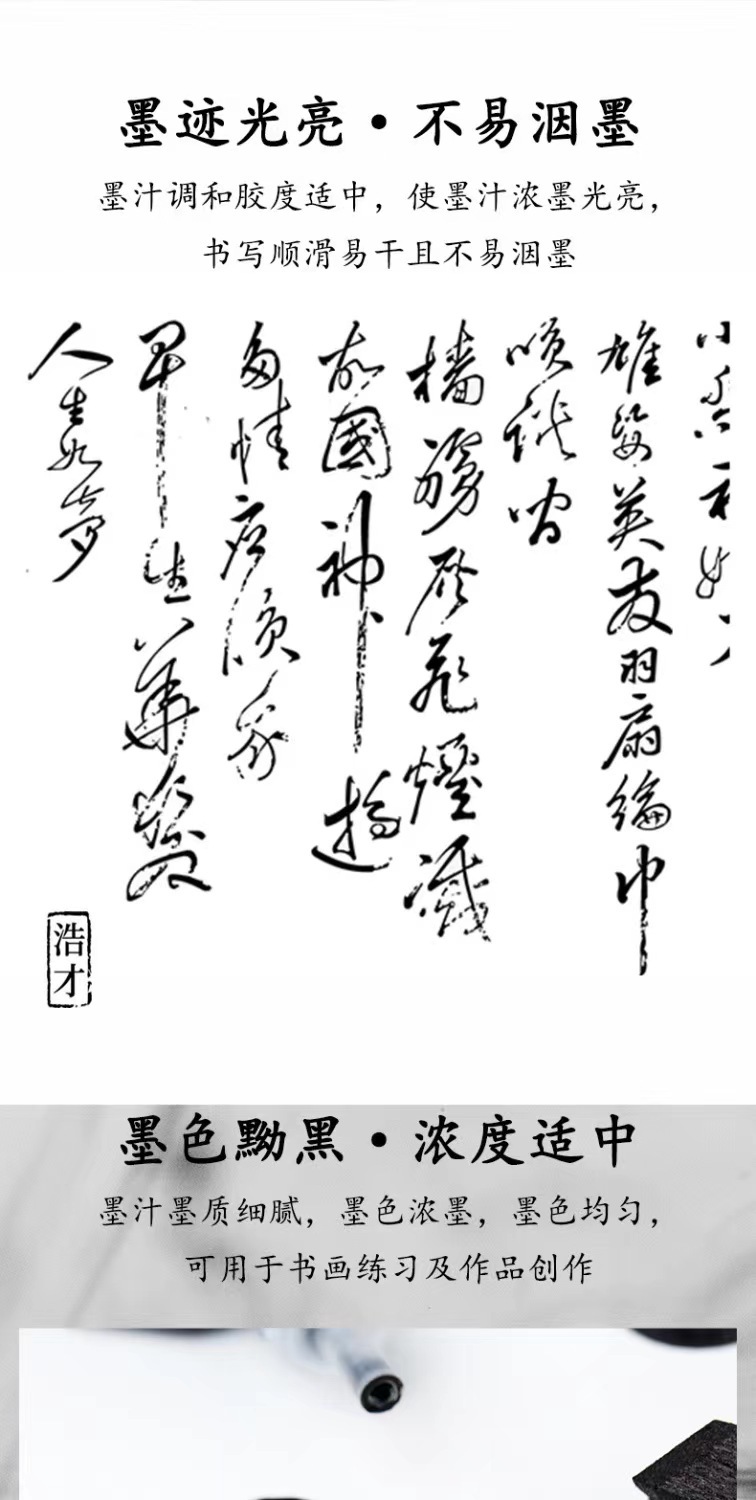 墨迹光亮·不易洇墨
墨汁调和胶度适中，使墨汁浓墨光亮，
书写顺滑易干且不易洇墨
雄姿英发羽扇綸巾
談間
檣灰飛煙滅
故國神遊
多情应我
早生華髮
人生如夢
浩才
墨色黝黑·浓度适中
墨汁墨质细腻，墨色浓墨，墨色均匀，
可用于书画练习及作品创作